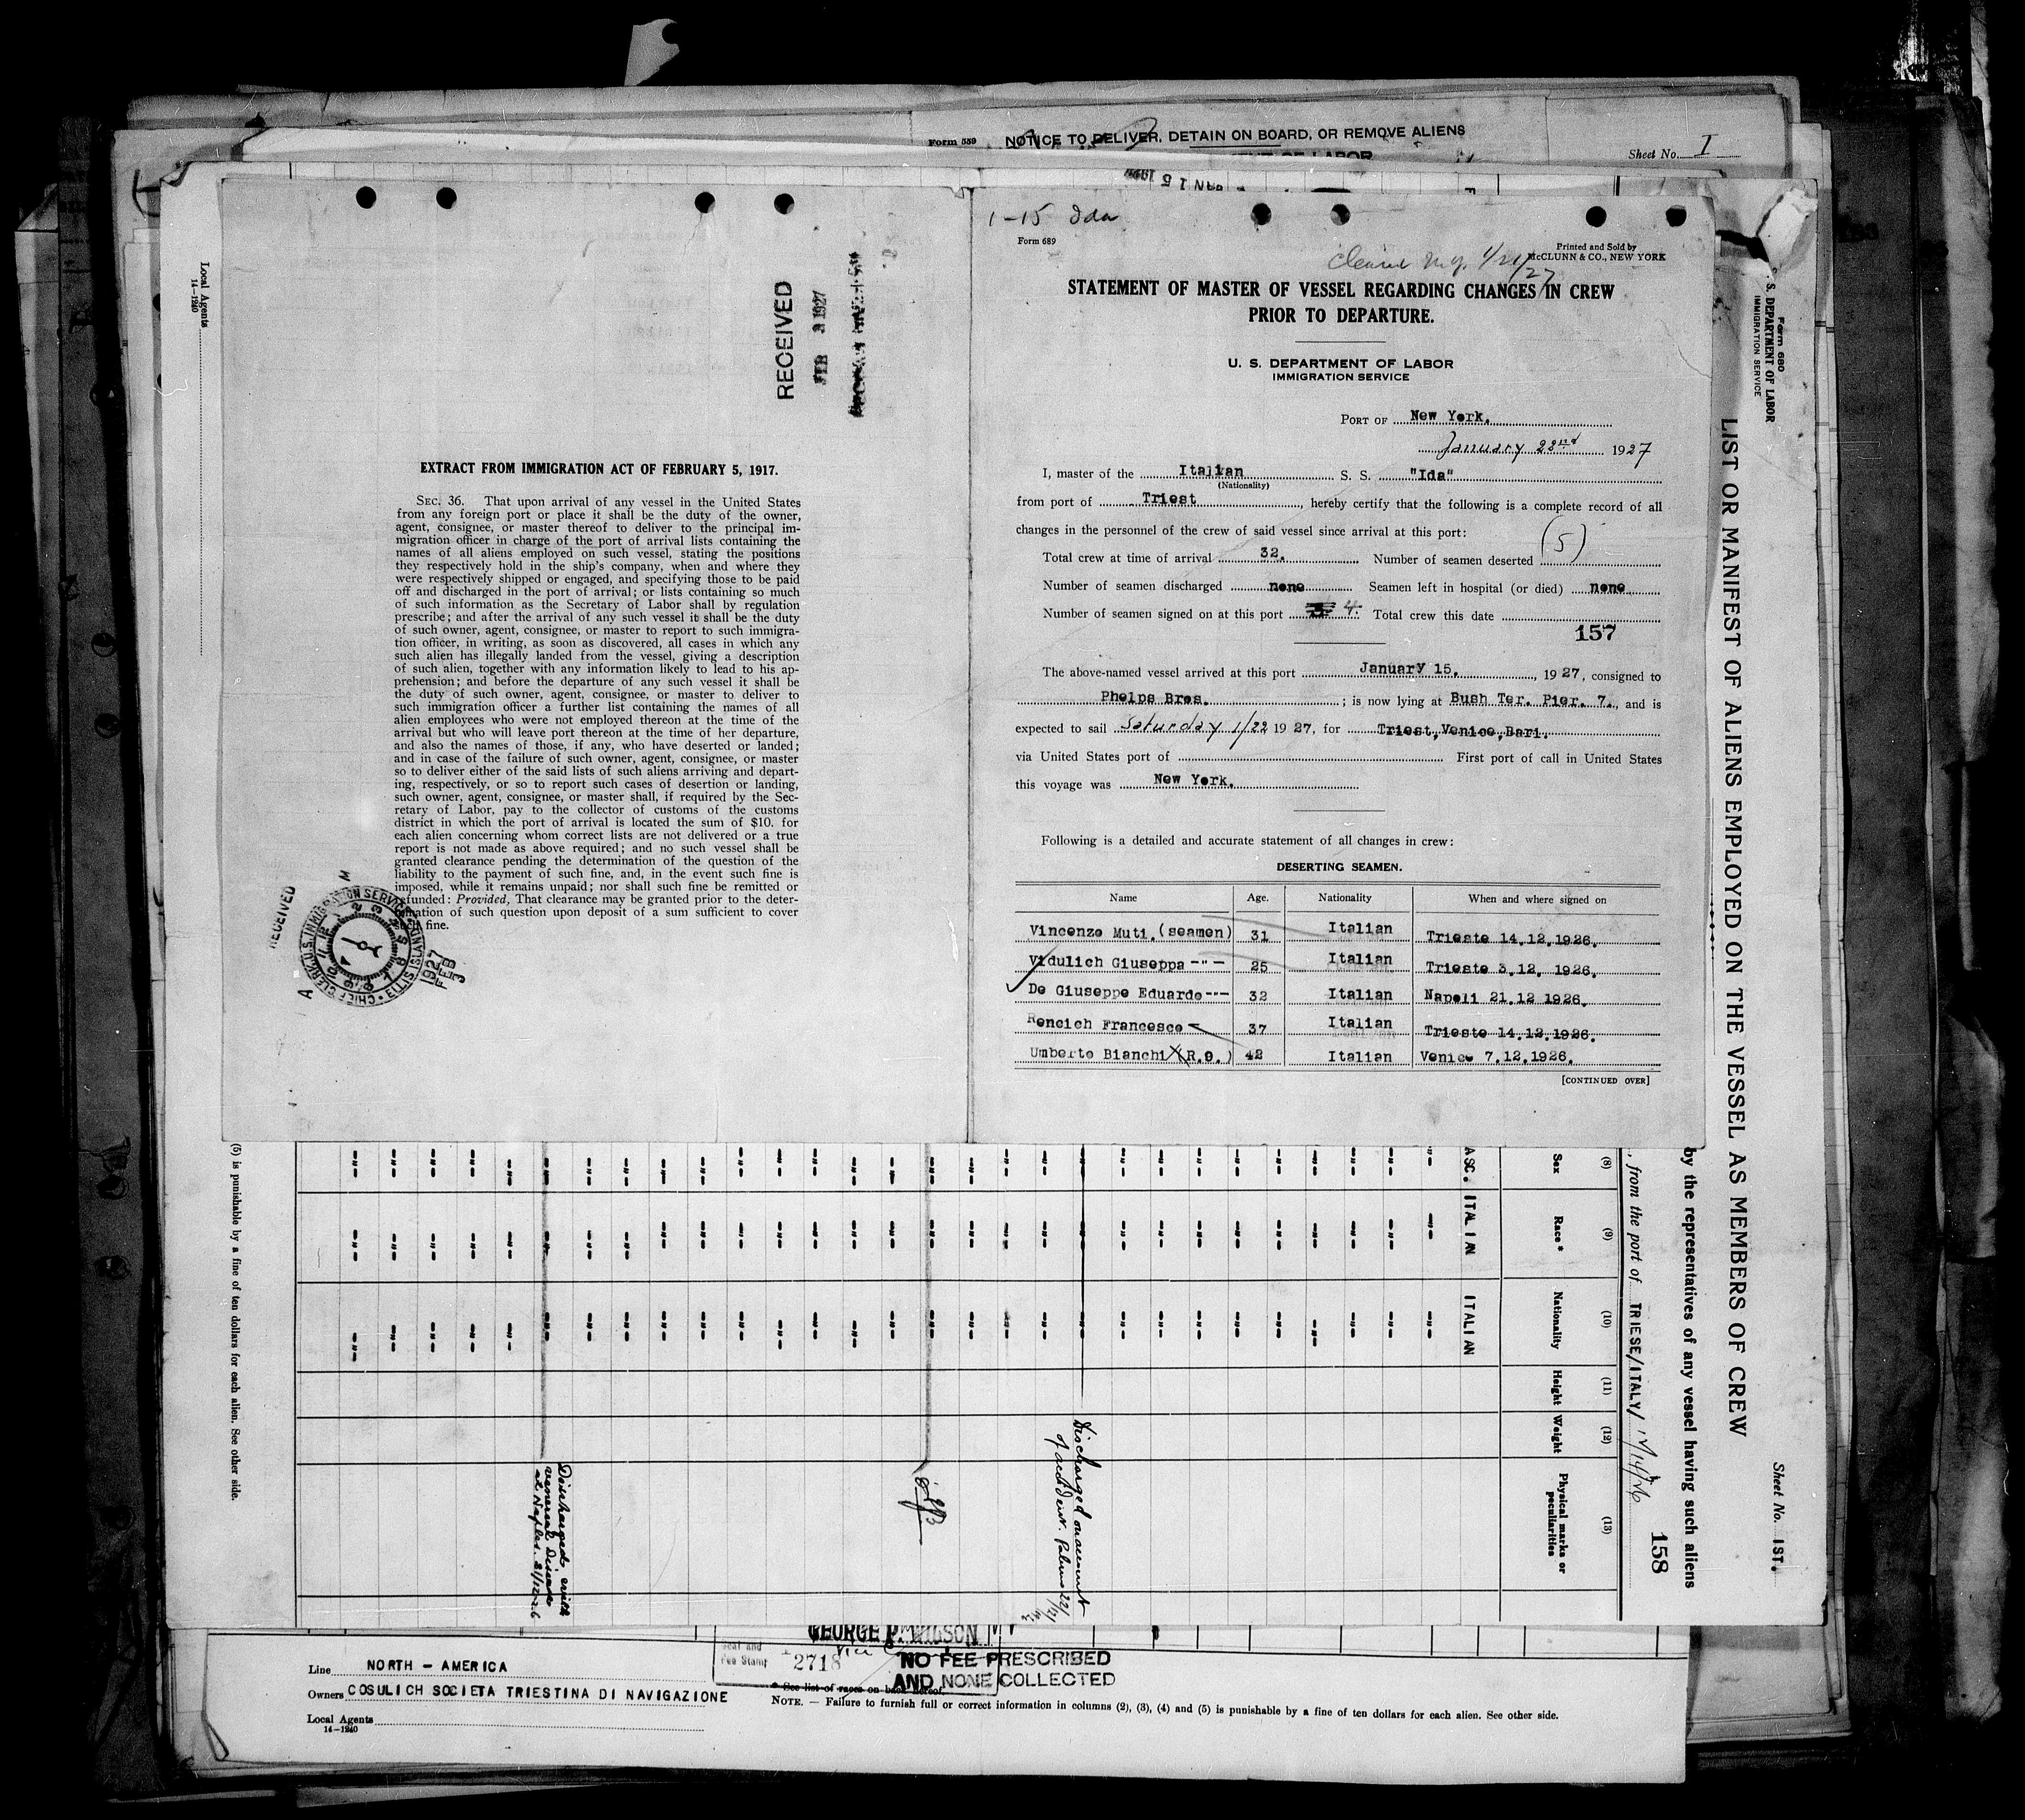 Form 559 NOTICE TO DELIVER, DETAIN ON BOARD, OR REMOVE ALIENS
Sheet No. I
Local Agents
14-1240
RECEIVED
FEB 3 1927
EXTRACT FROM IMMIGRATION ACT OF FEBRUARY 5, 1917.
SEC. 36. That upon arrival of any vessel in the United States
from any foreign port or place it shall be the duty of the owner,
agent, consignee, or master thereof to deliver to the principal im-
migration officer in charge of the port of arrival lists containing the
names of all aliens employed on such vessel, stating the positions
they respectively hold in the ship's company, when and where they
were respectively shipped or engaged, and specifying those to be paid
off and discharged in the port of arrival; or lists containing so much
of such information as the Secretary of Labor shall by regulation
prescribe; and after the arrival of any such vessel it shall be the duty
of such owner, agent, consignee, or master to report to such immigra-
tion officer, in writing, as soon as discovered, all cases in which any
such alien has illegally landed from the vessel, giving a description
of such alien, together with any information likely to lead to his ap-
prehension; and before the departure of any such vessel it shall be
the duty of such owner, agent, consignee, or master to deliver to
such immigration officer a further list containing the names of all
alien employees who were not employed thereon at the time of the
arrival but who will leave port thereon at the time of her departure,
and also the names of those, if any, who have deserted or landed;
and in case of the failure of such owner, agent, consignee, or master
so to deliver either of the said lists of such aliens arriving and depart-
ing, respectively, or so to report such cases of desertion or landing,
such owner, agent, consignee, or master shall, if required by the Sec-
retary of Labor, pay to the collector of customs of the customs
district in which the port of arrival is located the sum of $10. for
each alien concerning whom correct lists are not delivered or a true
report is not made as above required; and no such vessel shall be
granted clearance pending the determination of the question of the
liability to the payment of such fine, and, in the event such fine is
imposed, while it remains unpaid; nor shall such fine be remitted or
refunded: Provided, That clearance may be granted prior to the deter-
mination of such question upon deposit of a sum sufficient to cover
such fine.
RECEIVED
CHIEF CLERK, U.S. IMMIGRATION SERVICE
1927
FEB
3
1-15 Ida
Form 689
Printed and Sold by
McCLUNN & CO., NEW YORK
STATEMENT OF MASTER OF VESSEL REGARDING CHANGES IN CREW
PRIOR TO DEPARTURE.
U. S. DEPARTMENT OF LABOR
IMMIGRATION SERVICE
PORT OF New York.
January 22nd 1927
I, master of the Italian S. S. "Ida"
(Nationality)
from port of Triest, hereby certify that the following is a complete record of all
changes in the personnel of the crew of said vessel since arrival at this port:
Total crew at time of arrival 32. Number of seamen deserted (5)
Number of seamen discharged none Seamen left in hospital (or died) none
Number of seamen signed on at this port 4. Total crew this date
157
The above-named vessel arrived at this port January 15. , 1927, consigned to
Phelps Bros. ; is now lying at Bush Ter. Pier. 7., and is
expected to sail Saturday 1/22 1927, for Triest, Venice, Bari.
via United States port of First port of call in United States
this voyage was New York.
Following is a detailed and accurate statement of all changes in crew:
DESERTING SEAMEN.
Name Age. Nationality When and where signed on
Vincenzo Muti. (seamen) 31 Italian Trieste 14.12.1926.
Vidulich Giuseppa -"- 25 Italian Trieste 3.12. 1926.
De Giuseppe Eduardo -"- 32 Italian Napoli 21.12 1926.
Rencich Francesco 37 Italian Trieste 14.12.1926.
Umberto Bianchi (R.O.) 42 Italian Venice 7.12.1926.
[CONTINUED OVER]
Form 680
U. S. DEPARTMENT OF LABOR
IMMIGRATION SERVICE
LIST OR MANIFEST OF ALIENS EMPLOYED ON THE VESSEL AS MEMBERS OF CREW
Sheet No. 1ST.
by the representatives of any vessel having such aliens
158
, from the port of TRIESE/ITALY/
(8) (9) (10) (11) (12) (13)
Sex Race * Nationality Height Weight Physical marks or peculiarities
ASC. ITALIAN ITALIAN
Discharged on account
of accident. Palermo 22/12/26
Discharged with
venereal Disease
at Naples. 21/12-26
(5) is punishable by a fine of ten dollars for each alien. See other side.
GEORGE P. WILSON
Seal and
Fee Stamp
2718
NO FEE PRESCRIBED
AND NONE COLLECTED
Line NORTH - AMERICA
Owners COSULICH SOCIETA TRIESTINA DI NAVIGAZIONE
Local Agents
14-1240
* See list of races on back hereof.
NOTE. — Failure to furnish full or correct information in columns (2), (3), (4) and (5) is punishable by a fine of ten dollars for each alien. See other side.